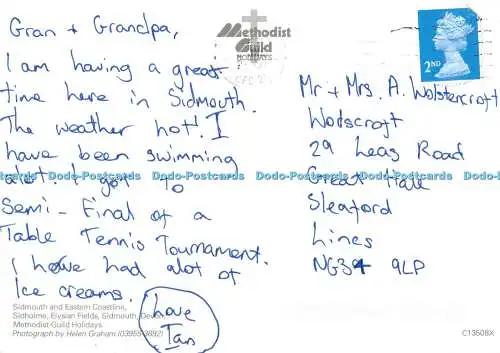 Gran + Grandpa,
I am having a great
time here in Sidmouth.
The weather hot! I
have been swimming
alot. I got to
Semi-Final of a
Table Tennis Tournament.
I have had alot of
Ice creams.
love
Ian
Methodist
Guild
HOLIDAYS
2ND
Mr + Mrs. A. Wolstencroft
Woodscroft
29 Leas Road
Great Hale
Sleaford
Lincs
NG34 9LP
Dodo-Postcards Dodo-Postcards Dodo-Postcards Dodo-Postcards Dodo-Postcards
Sidmouth and Eastern Coastline,
Sidholme, Elysian Fields, Sidmouth, Devon.
Methodist Guild Holidays
Photograph by Helen Graham (0395 5
C13508X